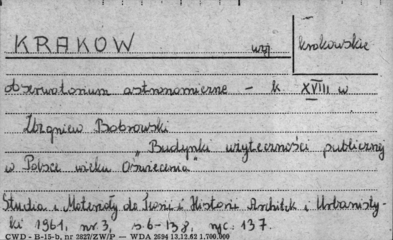 KRAKÓW woj. krakowskie
obserwatorium astronomiczne - k. XVIII w
Zbigniew Bobrowski
"Budynki użyteczności publicznej
w Polsce wieku Oświecenia"
Studia i Materiały do Teorii i Historii Archit. i Urbanisty-
ki 1961, nr 3, s. 6-138, ryc. 137.
CWD - B-15-b, nr 2827/ZW/P — WDA 2694 13.12.62 1.700.000